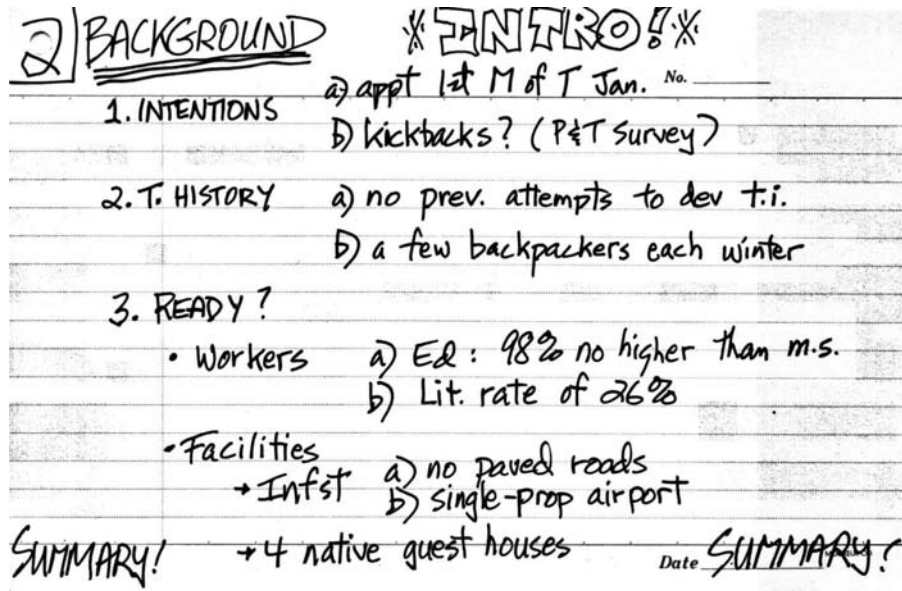 2 BACKGROUND *INTRO!*
1. INTENTIONS a) appt 1st M of T Jan. No.
b) kickbacks? (P&T Survey)
2. T. HISTORY a) no prev. attempts to dev t.i.
b) a few backpackers each winter
3. READY?
• Workers a) Ed: 98% no higher than m.s.
b) Lit. rate of 26%
• Facilities
→ Infst a) no paved roads
b) single-prop airport
SUMMARY! → 4 native guest houses Date SUMMARY!